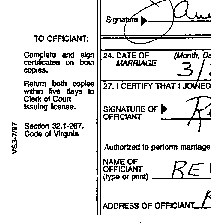 Signature
TO OFFICIANT:
Complete and sign
certificates on both
copies.
Return both copies
within five days to
Clerk of Court
issuing license.
Section 32.1-267.
Code of Virginia
VS3-7/97
24. DATE OF
MARRIAGE
(Month, Da
3/
27. I CERTIFY THAT I JOINED
SIGNATURE OF
OFFICIANT
Authorized to perform marriage
NAME OF
OFFICIANT
(type or print)
RE
ADDRESS OF OFFICIANT